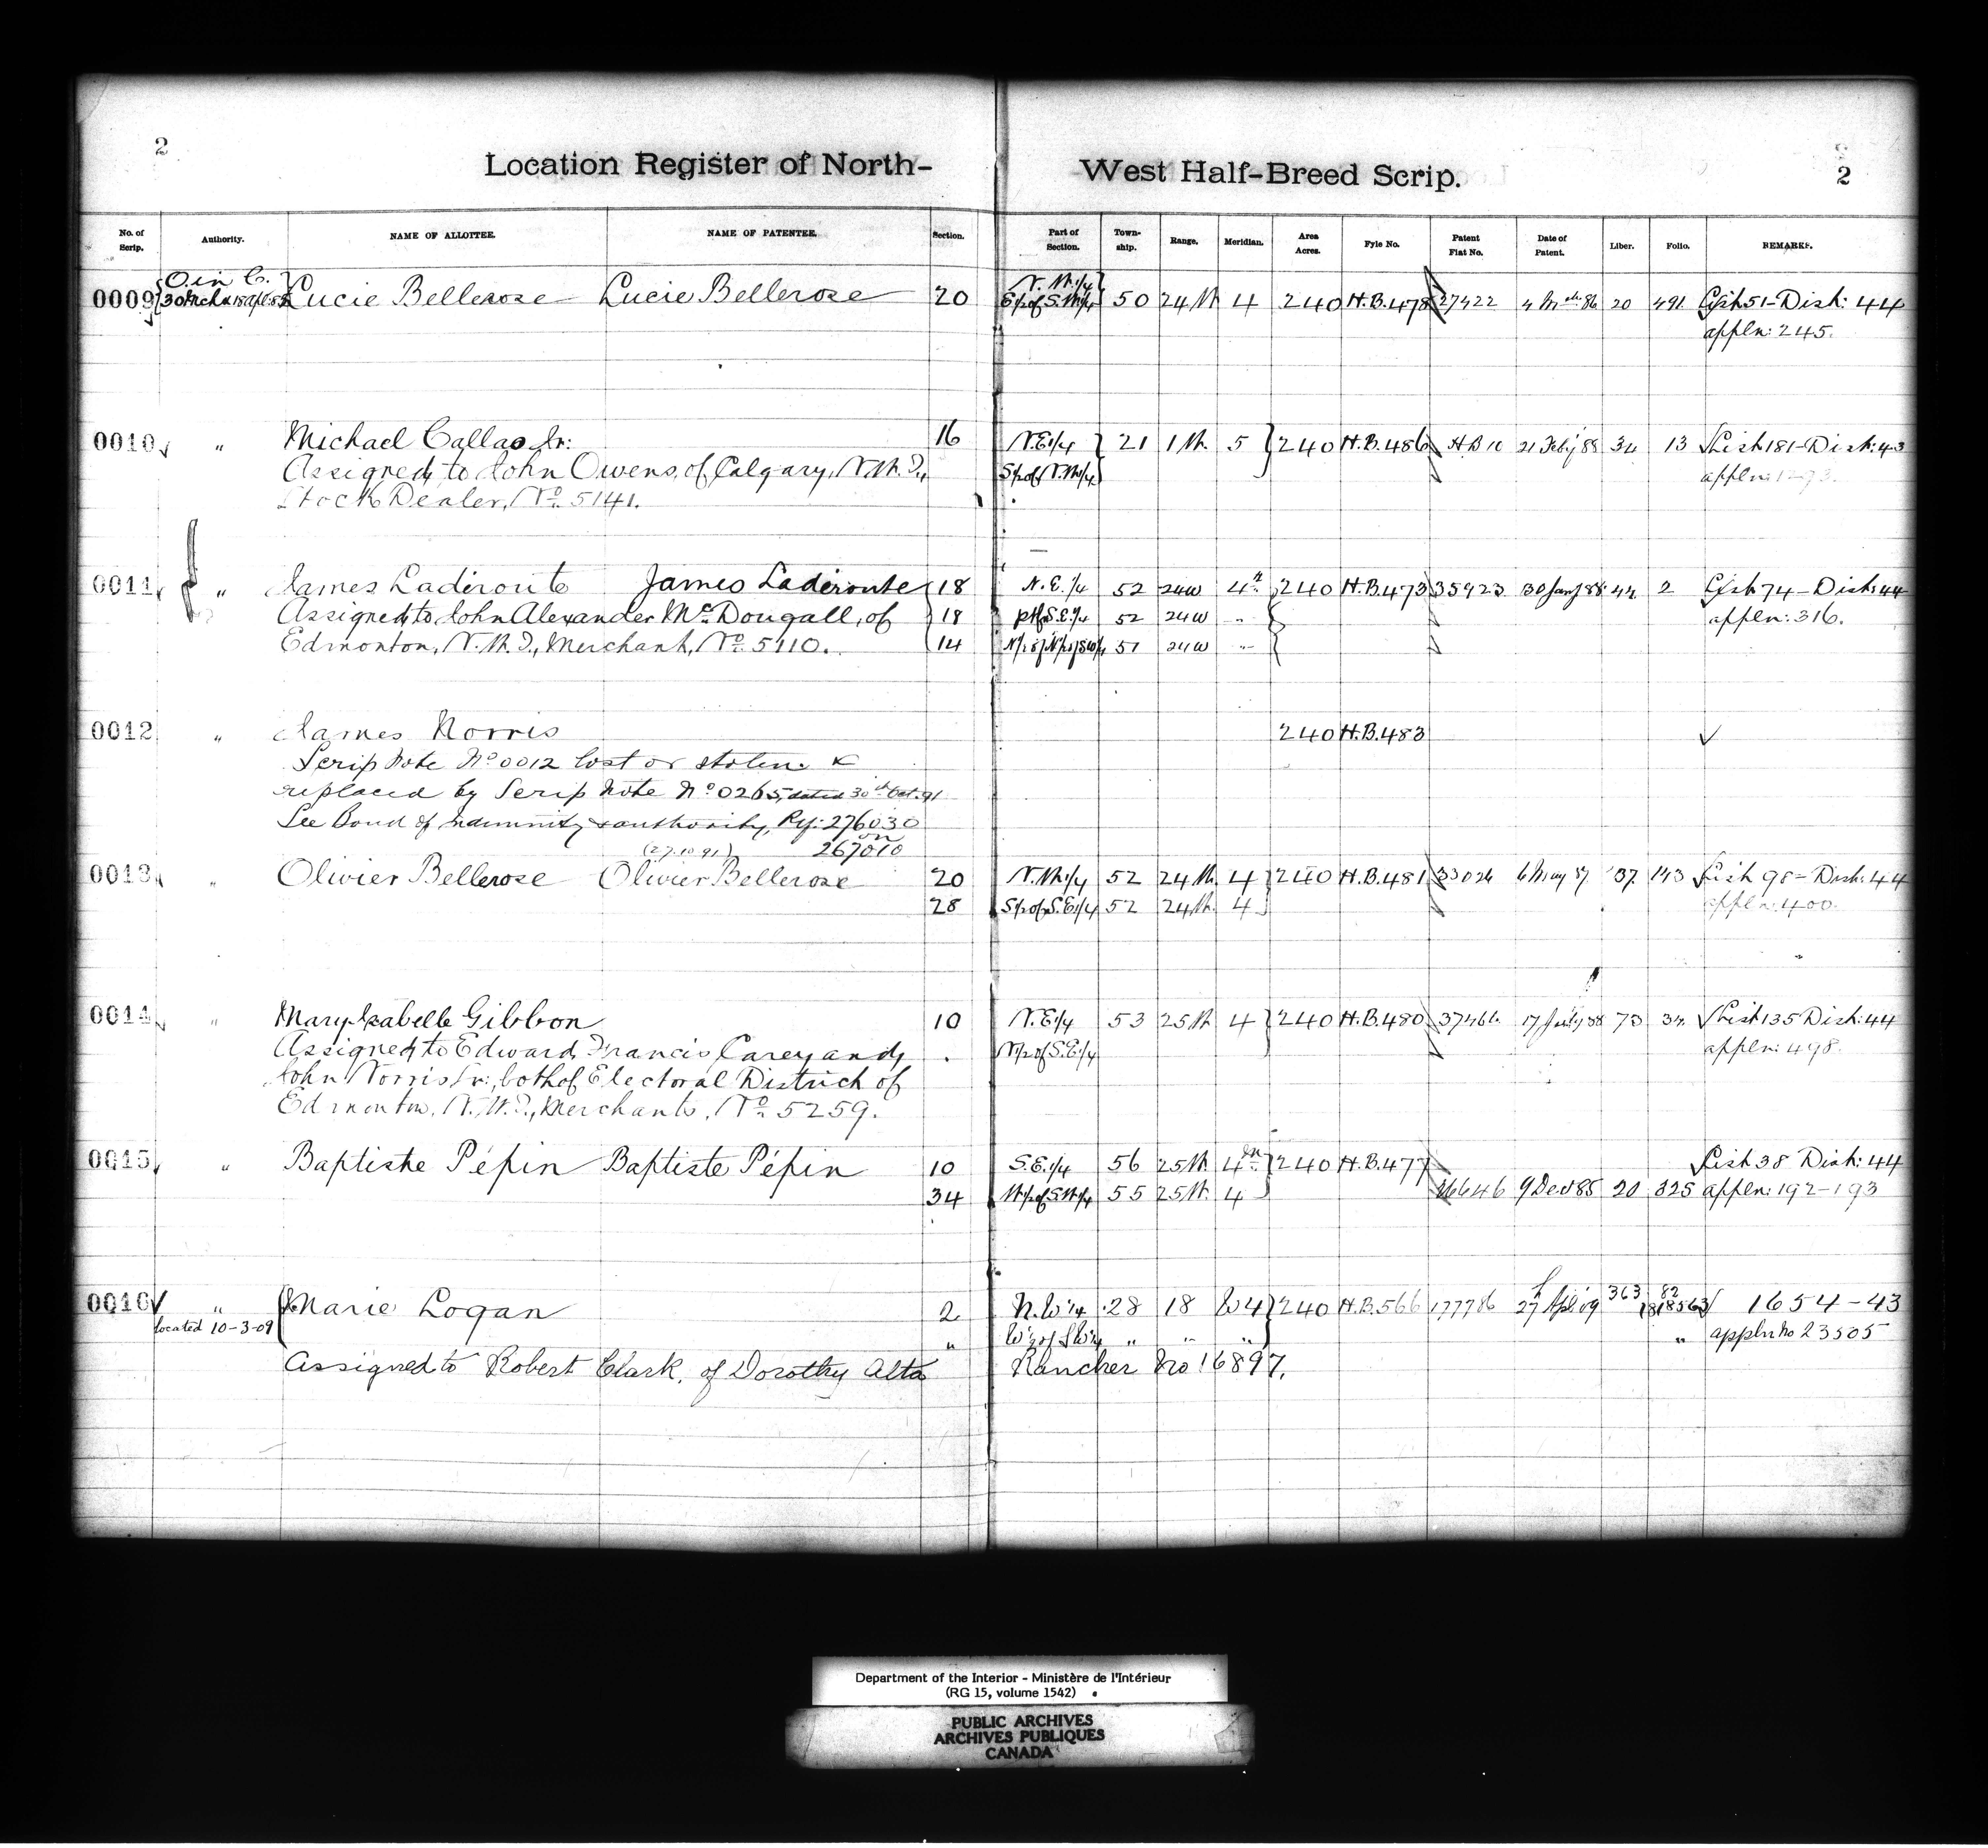 2
Location Register of North-West Half-Breed Scrip.
2
No. of Scrip. Authority. NAME OF ALLOTTEE. NAME OF PATENTEE. Section. Part of Section. Town-ship. Range. Meridian. Area Acres. Fyle No. Patent Fiat No. Date of Patent. Liber. Folio. REMARKS.
O. in C. N.W.1/4
0009 30 Mch & 18 Apl: 85 Lucie Bellerose Lucie Bellerose 20 E1/2 of S.W1/4 50 24W 4 240 H.B.478 27422 4 Mch 86 20 491 List 51 - Dist: 44
appln: 245.
0010 " Michael Callao Jr: 16 N.E.1/4 21 1W. 5 240 H.B.486 H.B 10 21 Feby 88 34 13 List 181 - Dist: 43
Assigned to John Owens, of Calgary, N.W.T., S1/2 of N.W1/4 appln:
Stock Dealer, No. 5141.
0011 " James Laderoute James Laderoute 18 N.E.1/4 52 24W 4th 240 H.B.473 35923 30 Jany 88 44 2 List 74 - Dist: 44
Assigned to John Alexander McDougall, of 18 pt of S.E.1/4 52 24W " appln: 316.
Edmonton, N.W.T., Merchant, No. 5110. 14 51 24W "
0012 " James Norris 240 H.B.483
Scrip Note No 0012 lost or stolen &
replaced by Scrip Note No 0265, dated 30th Oct. 91
See Bond of Indemnity & authority, Ref: 276030
on
(27.10.91) 267010
0013 " Olivier Bellerose Olivier Bellerose 20 N.W.1/4 52 24W. 4 240 H.B.481 33024 6 May 87 37 143 List 98 - Dist: 44
28 S1/2 of S.E.1/4 52 24W. 4 appln: 400.
0014 " Mary Isabelle Gibbon 10 N.E.1/4 53 25W. 4 240 H.B.480 37466 17 July 88 73 34 List 135 Dist: 44
Assigned to Edward Francis Carey and N1/2 of S.E.1/4 appln: 498.
John Norris Sr:, both of Electoral District of
Edmonton, N.W.T., Merchants, No. 5259.
0015 " Baptiste Pépin Baptiste Pépin 10 S.E.1/4 56 25W. 4th 240 H.B.477 List 38 Dist: 44
34 W1/2 of S.W1/4 55 25W. 4 26646 9 Dec 85 20 325 appln: 192-193
0016 " Marie Logan 2 N.W1/4 28 18 W4 240 H.B.566 177786 27 Apl '09 363 82 1654-43
located 10-3-09 " W1/2 of SW1/4 " " " " appln no 23505
Assigned to Robert Clark, of Dorothy Alta Rancher No 16897.
Department of the Interior - Ministère de l'Intérieur
(RG 15, volume 1542)
PUBLIC ARCHIVES
ARCHIVES PUBLIQUES
CANADA